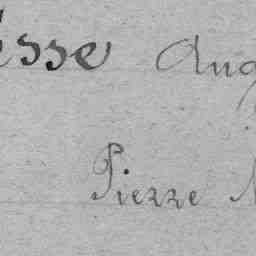 esse Aug
Pierre